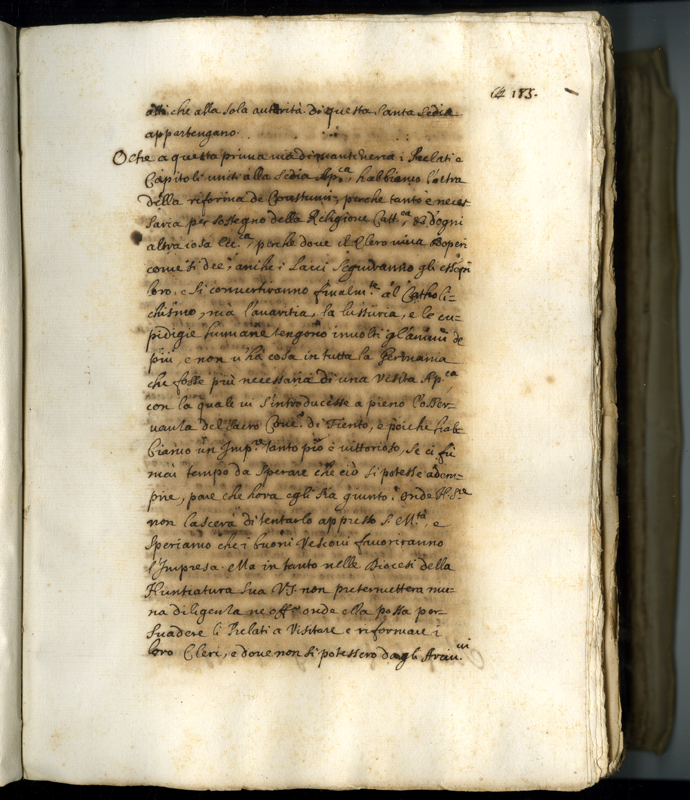 185.
atti che alla sola autorità di questa santa Sedia
appartengano.
Oltre a questa prima via di mantenere i Prelati e
Capitoli uniti alla Sedia Ap.ca, habbiamo l'altra
della riforma de Costumi, perche tanto è neces
saria per sostegno della Religione Catt.ca, et d'ogni
altra cosa Ecc.ca, perche dove il Clero viva
come si dee, anche i Laici seguiranno gli
loro. e si convertiranno finalm.te al Catholi-
chismo, mà l'avaritia, la lussuria, e le cu-
pidigie humane tengono involti gl'animi de
più, e non v'ha cosa in tutta la Germania
che fosse più necessaria di una Visita Ap.ca
con la quale vi s'introducesse a pieno l'osser-
vanza del Sacro Conc.o di Trento, e poiche hab-
biamo un Imp.re tanto pio e vittorioso, se ci fù
mai tempo da sperare che ciò si potesse adem-
pire, pare che hora egli sia giunto. onde N. S.re
non lascerà di tentarlo appresso S. M.tà, e
speriamo che i buoni Vescovi favoriranno
l'Impresa. Ma in tanto nelle Diocesi della
Nuntiatura sua V.S. non pretermetterà niu-
na diligenza ne off.o onde ella possa per-
suadere li Prelati a visitare e riformare i
loro Cleri, e dove non si potessero dagli Arciv.vi